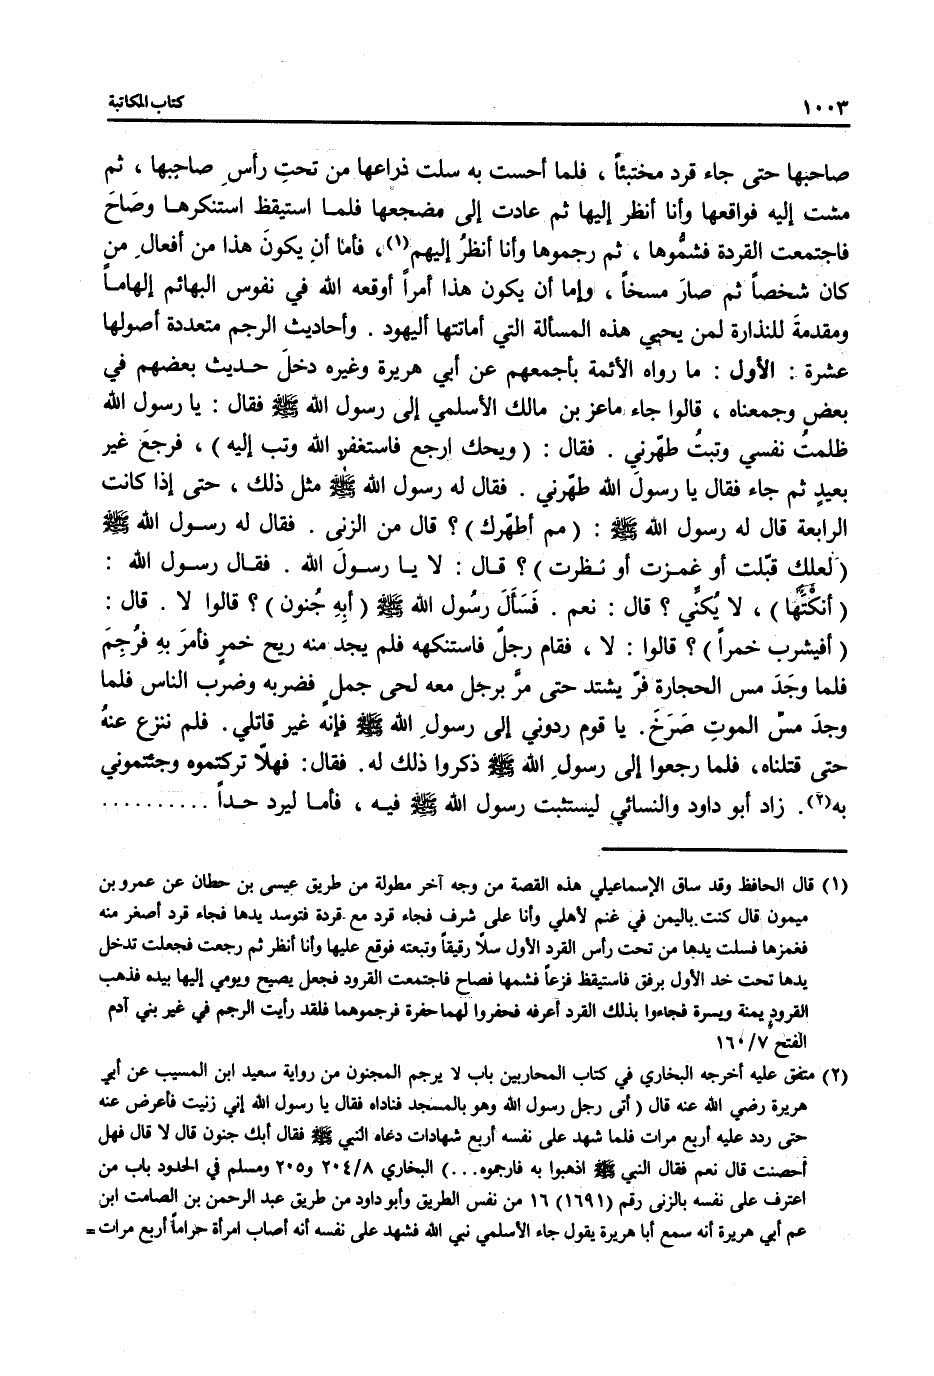 ١٠٠٣ كتاب المكاتبة
صاحبها حتى جاء قرد مختبئاً ، فلما أحست به سلت ذراعها من تحتِ رأس صاحِبها ، ثم
مشت إليه فواقعها وأنا أنظر إليها ثم عادت إلى مضجعها فلما استيقظ استنكرها وصَاحَ
فاجتمعت القردة فشمُّوها ، ثم رجموها وأنا أنظرُ إليهم(١)، فأما أن يكونَ هذا من أفعال من
كان شخصاً ثم صارَ مسخاً ، وإما أن يكون هذا أمراً أوقعه الله في نفوس البهائم إلهاماً
ومقدمةَ للنذارة لمن يحيي هذه المسألة التي أماتتها أليهود . وأحاديث الرجم متعددة أصولها
عشرة : الأول : ما رواه الأئمة بأجمعهم عن أبي هريرة وغيره دخلَ حديث بعضهم في
بعض وجمعناه ، قالوا جاء ماعز بن مالك الأسلمي إلى رسول الله ﷺ فقال : يا رسول الله
ظلمتُ نفسي وتبتُ طهّرني . فقال : ( ويحك ارجع فاستغفر الله وتب إليه ) ، فرجعَ غير
بعيدٍ ثم جاء فقال يا رسولَ الله طهّرني . فقال له رسول الله ﷺ مثل ذلك ، حتى إذا كانت
الرابعة قال له رسول الله ﷺ : ( مم أطهّرك ) ؟ قال من الزنى . فقال له رسول الله ﷺ
( لعلك قبّلت أو غمزت أو نظرت ) ؟ قال : لا يا رسولَ الله . فقال رسول الله :
( أنكتَّها ) ، لا يُكنِّي ؟ قال : نعم . فَسَأَلَ رسُول الله ﷺ ( أبِهِ جُنون ) ؟ قالوا لا . قال :
( أفيشرب خمراً ) ؟ قالوا : لا ، فقام رجلٌ فاستنكهه فلم يجد منه ريح خمرٍ فأمرَ بهِ فرُجِمَ
فلما وجَدَ مس الحجارة فرّ يشتد حتى مرَّ برجل معه لحى جملٍ فضربه وضرب الناس فلما
وجدَ مسّ الموتِ صَرَخَ . يا قوم ردوني إلى رسول الله ﷺ فإنه غير قاتلي. فلم ننزع عنهُ
حتى قتلناه، فلما رجعوا إلى رسول الله ﷺ ذكروا ذلك له. فقال: فهلاّ تركتموه وجئتموني
به(٢). زاد أبو داود والنسائي ليستثبت رسول الله ﷺ فيه ، فأما ليرد حداً ..........
(١) قال الحافظ وقد ساق الإسماعيلي هذه القصة من وجه آخر مطولة من طريق عيسى بن حطان عن عمرو بن
ميمون قال كنت باليمن في غنم لأهلي وأنا على شرف فجاء قرد مع قردة فتوسد يدها فجاء قرد أصغر منه
فغمزها فسلت يدها من تحت رأس القرد الأول سلا رقيقاً وتبعته فوقع عليها وأنا أنظر ثم رجعت فجعلت تدخل
يدها تحت خد الأول برفق فاستيقظ فزعاً فشمها فصاح فاجتمعت القرود فجعل يصيح ويومي إليها بيده فذهب
القرود يمنة ويسرة فجاءوا بذلك القرد أعرفه فحفروا لهما حفرة فرجموهما فلقد رأيت الرجم في غير بني آدم
الفتح ١٦٠/٧
(٢) متفق عليه أخرجه البخاري في كتاب المحاربين باب لا يرجم المجنون من رواية سعيد ابن المسيب عن أبي
هريرة رضي الله عنه قال ( أتى رجل رسول الله وهو بالمسجد فناداه فقال يا رسول الله إني زنيت فأعرض عنه
حتى ردد عليه أربع مرات فلما شهد على نفسه أربع شهادات دعاه النبي ﷺ فقال أبك جنون قال لا قال فهل
أحصنت قال نعم فقال النبي ﷺ اذهبوا به فارجموه...) البخاري ٢٠٤/٨ و٢٠٥ ومسلم في الحدود باب من
اعترف على نفسه بالزنى رقم (١٦٩١) ١٦ من نفس الطريق وأبو داود من طريق عبد الرحمن بن الصامت ابن
عم أبي هريرة أنه سمع أبا هريرة يقول جاء الأسلمي نبي الله فشهد على نفسه أنه أصاب امرأة حراماً أربع مرات =